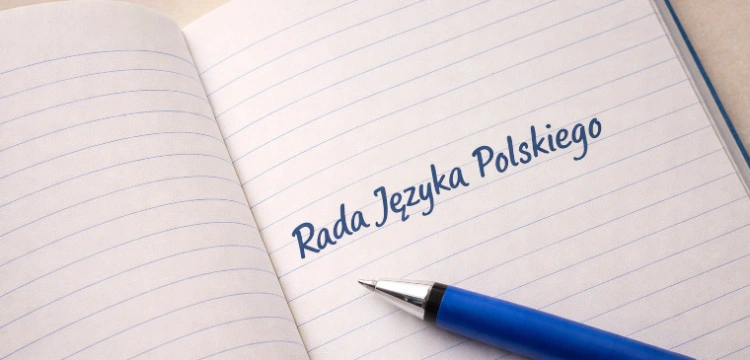 Rada Języka Polskiego